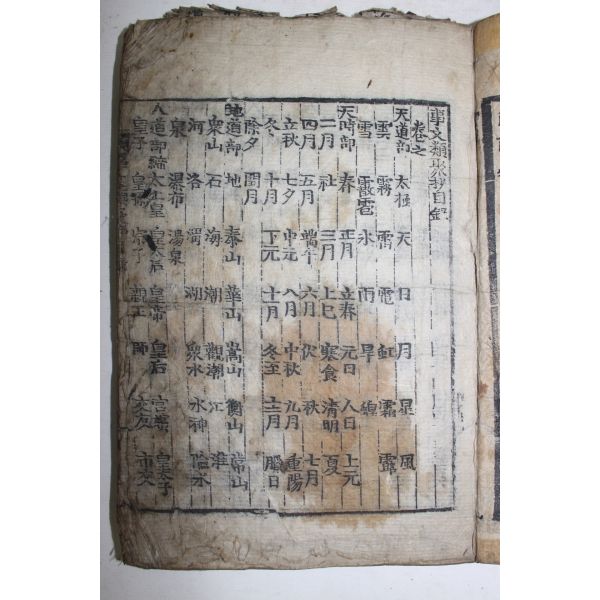 事文類聚抄目錄
卷之
天道部 太極 天 日 月 星 風
雲 霧 霄 電 虹 霜 露
雪 霰雹 氷 雨 旱
天時部 春 正月 立春 元日 人日 上元
二月 社 三月 上巳 寒食 清明 夏
四月 五月 端午 六月 伏 秋 七月
立秋 七夕 中元 八月 中秋 九月 重陽
冬 十月 下元 十一月 冬至 十二月 臘日
除夕 閏月
地道部 地 泰山 華山 嵩山 衡山 常山
衆山 石 海 潮 觀潮 江 淮
河 洛 渭 湖 衆水 水神
泉 瀑布 湯泉
人道部 太上皇 皇太后 皇帝 皇后 皇太子
皇子 宗子 師 交友 市交